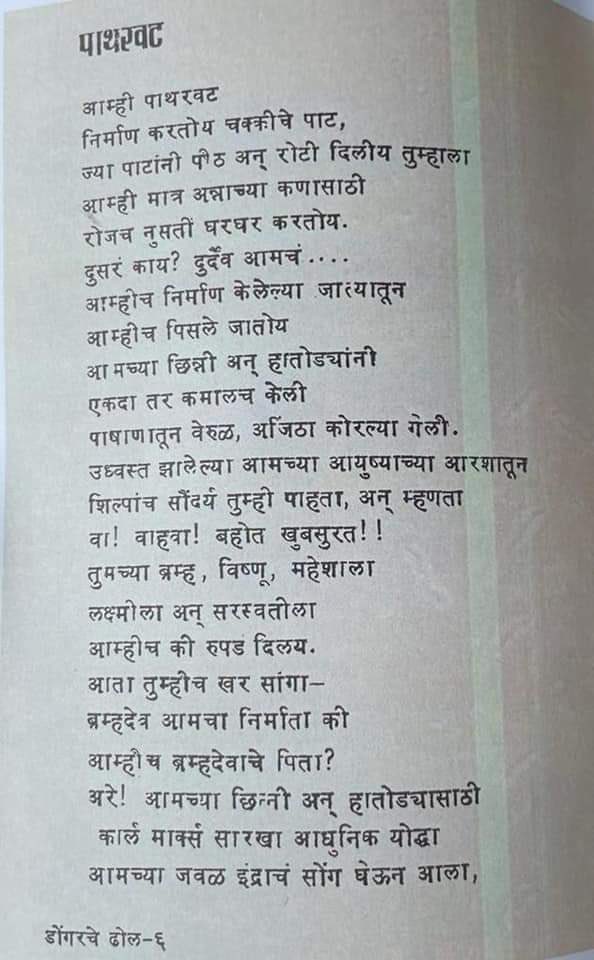 पाथरवट
आम्ही पाथरवट
निर्माण करतोय चक्कीचे पाट,
ज्या पाटांनी पीठ अन् रोटी दिलीय तुम्हाला
आम्ही मात्र अन्नाच्या कणासाठी
रोजच नुसतीं घरघर करतोय.
दुसरं काय? दुर्दैव आमचं....
आम्हीच निर्माण केलेल्या जात्यातून
आम्हीच पिसले जातोय
आमच्या छिन्नी अन् हातोड्यांनी
एकदा तर कमालच केली
पाषाणातून वेरुळ, अजिंठा कोरल्या गेली.
उध्वस्त झालेल्या आमच्या आयुष्याच्या आरशातून
शिल्पांच सौंदर्य तुम्ही पाहता, अन् म्हणता
वा! वाहवा! बहोत खुबसुरत!!
तुमच्या ब्रम्ह, विष्णू, महेशाला
लक्ष्मीला अन् सरस्वतीला
आम्हीच की रुपड दिलय.
आता तुम्हीच खर सांगा–
ब्रम्हदेव आमचा निर्माता की
आम्हीच ब्रम्हदेवाचे पिता?
अरे! आमच्या छिन्नी अन् हातोड्यासाठी
कार्ल मार्क्स सारखा आधुनिक योद्धा
आमच्या जवळ इंद्राचं सोंग घेऊन आला,
डोंगरचे ढोल-६